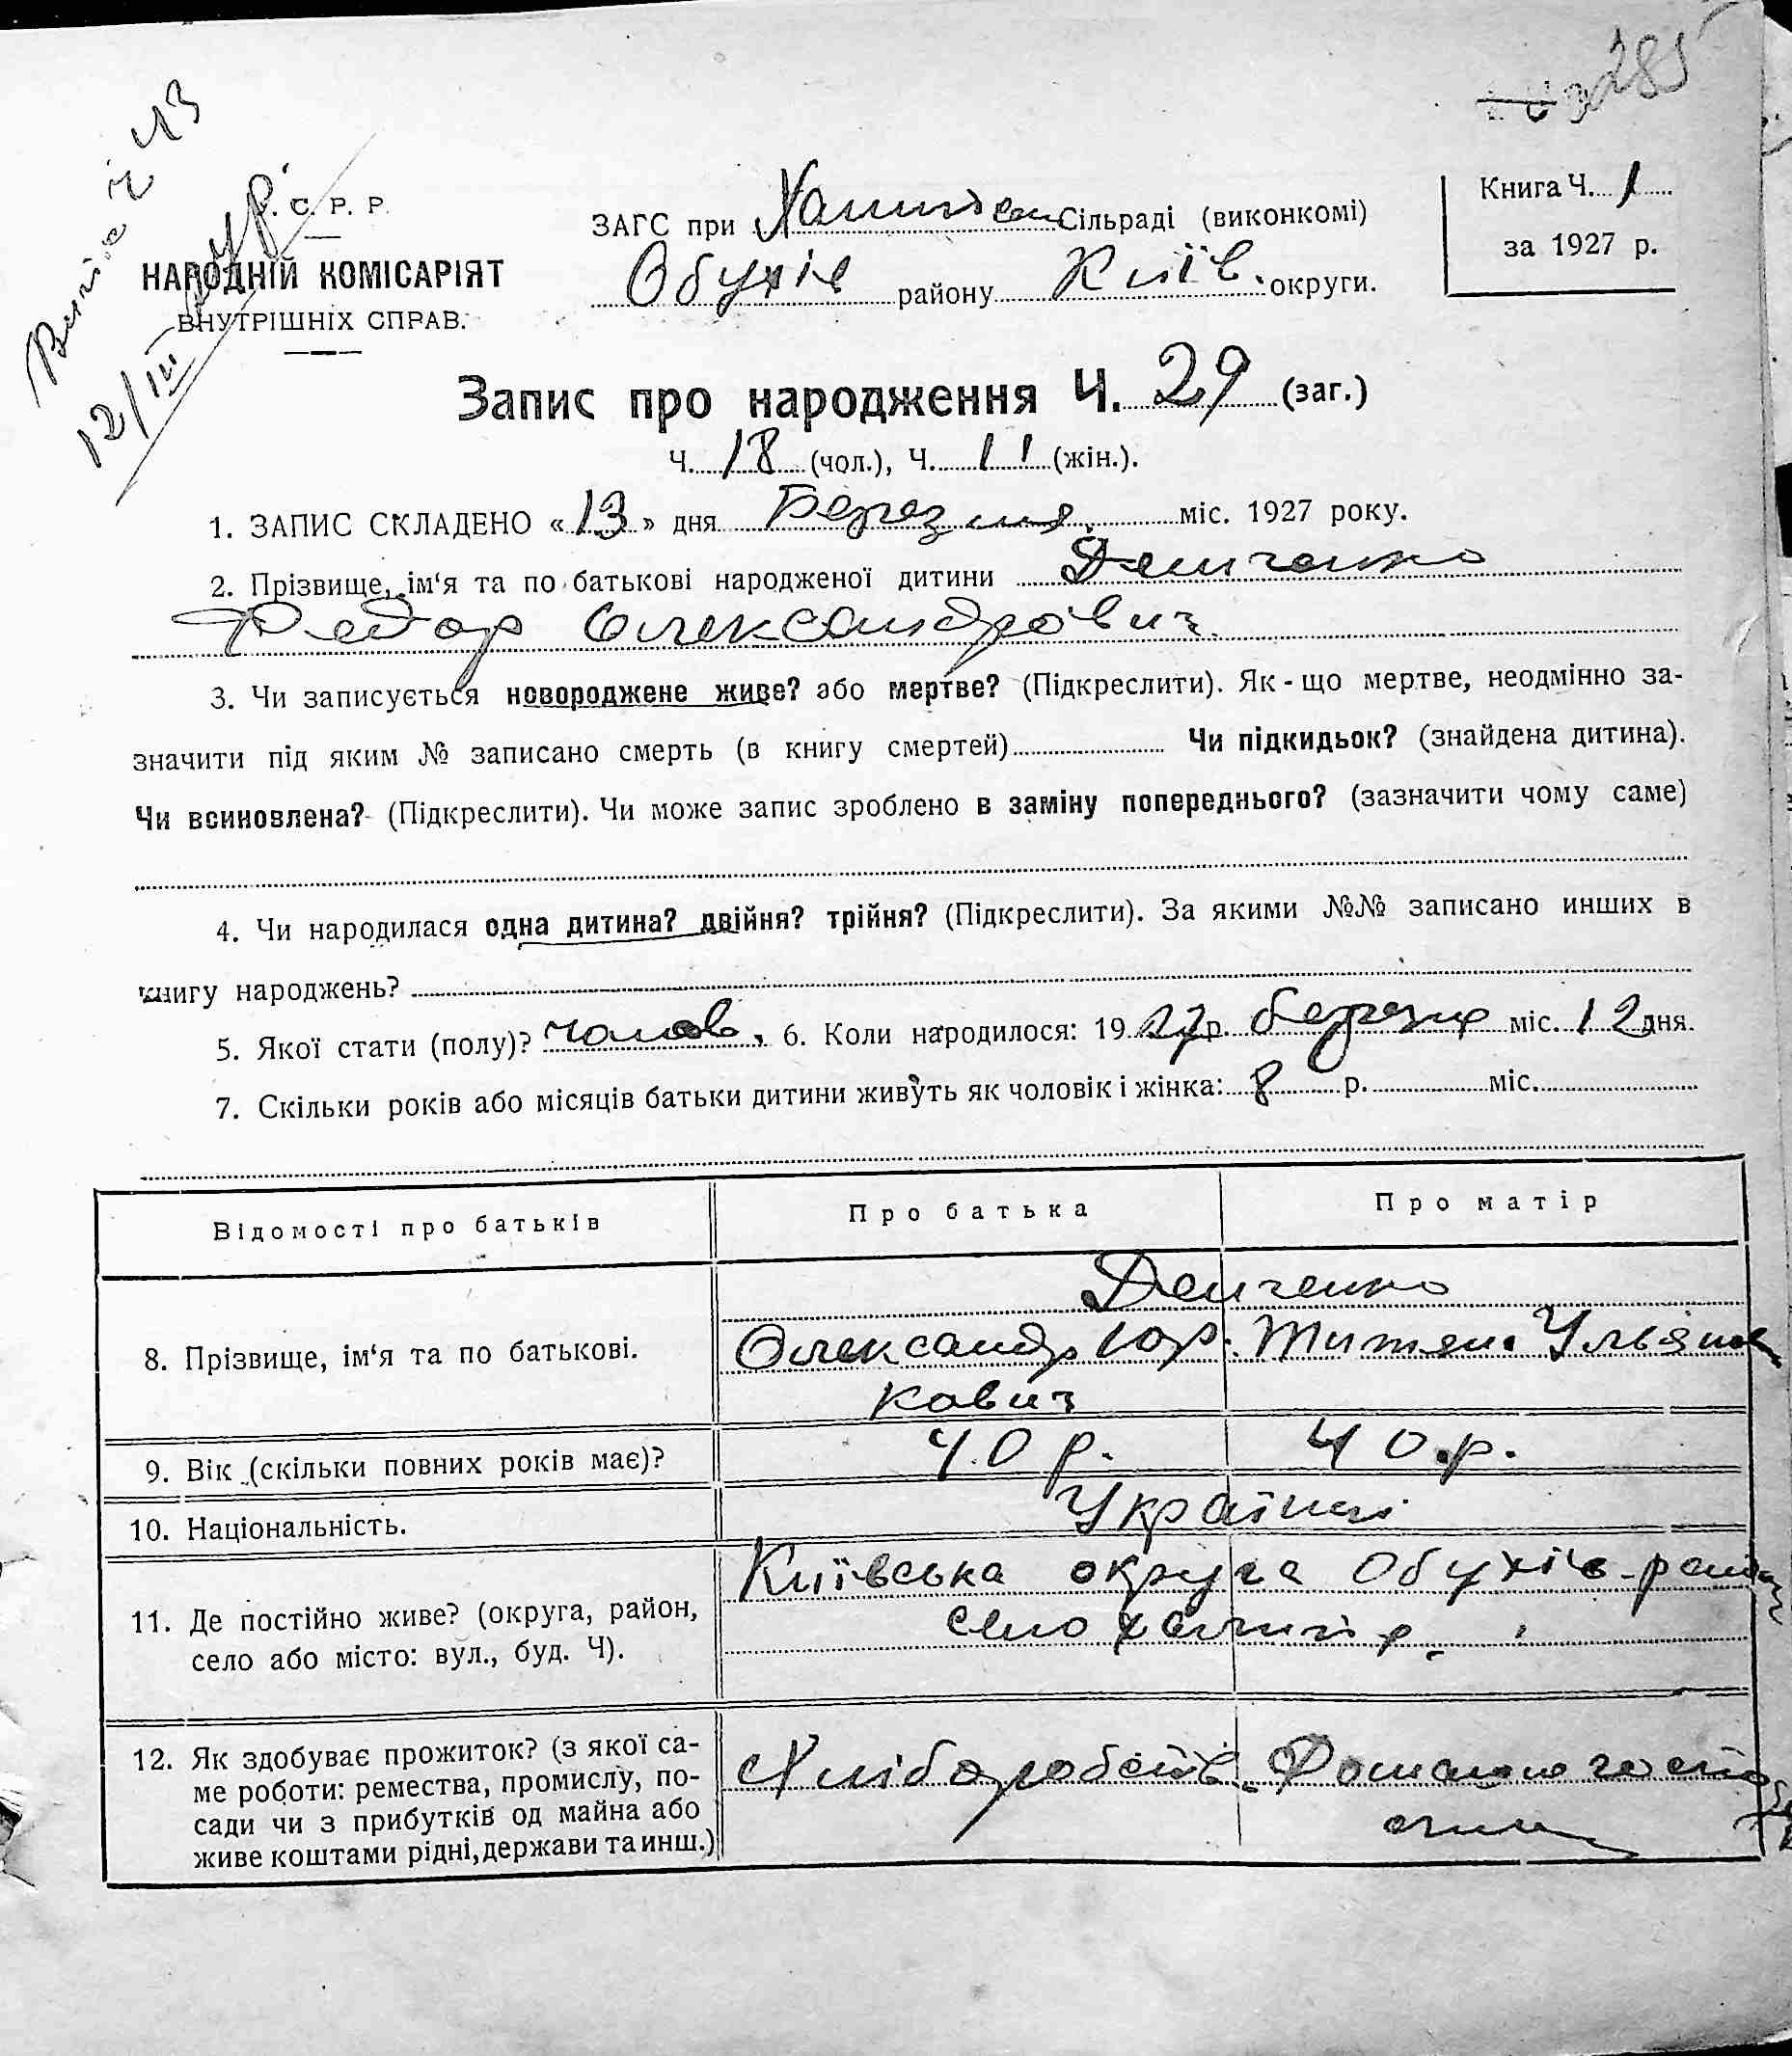 285
Випис ч 43
12/III
У. С. Р. Р.
НАРОДНІЙ КОМІСАРІЯТ
ВНУТРІШНІХ СПРАВ.
ЗАГС при Сільраді (виконкомі)
Обухів району Київ. округи.
Книга Ч. 1
за 1927 р.
Запис про народження Ч. 29 (заг.)
Ч. 18 (чол.), Ч. 11 (жін.).
1. ЗАПИС СКЛАДЕНО «13» дня Березня міс. 1927 року.
2. Прізвище, ім‘я та по батькові народженої дитини Демченко
Федор Олександрович.
3. Чи записується новороджене живе? або мертве? (Підкреслити). Як-що мертве, неодмінно за-
значити під яким № записано смерть (в книгу смертей) Чи підкидьок? (знайдена дитина).
Чи всиновлена? (Підкреслити). Чи може запис зроблено в заміну попереднього? (зазначити чому саме)
4. Чи народилася одна дитина? двійня? трійня? (Підкреслити). За якими №№ записано инших в
книгу народжень?
5. Якої стати (полу)? чолов. 6. Коли народилося: 1927 р. березня міс. 12 дня.
7. Скільки років або місяців батьки дитини живуть як чоловік і жінка: 8 р. міс.
Відомості про батьків Про батька Про матір
Демченко
8. Прізвище, ім‘я та по батькові. Олександр Юр- Ульянов
кович
9. Вік (скільки повних років має)? 40 р. 40 р.
10. Національність. Українці
11. Де постійно живе? (округа, район, Київська округа Обухів. район
село або місто: вул., буд. Ч). село
12. Як здобуває прожиток? (з якої са- Хліборобств. Домашнє госпо
ме роботи: ремества, промислу, по-
сади чи з прибутків од майна або
живе коштами рідні, держави та инш.)